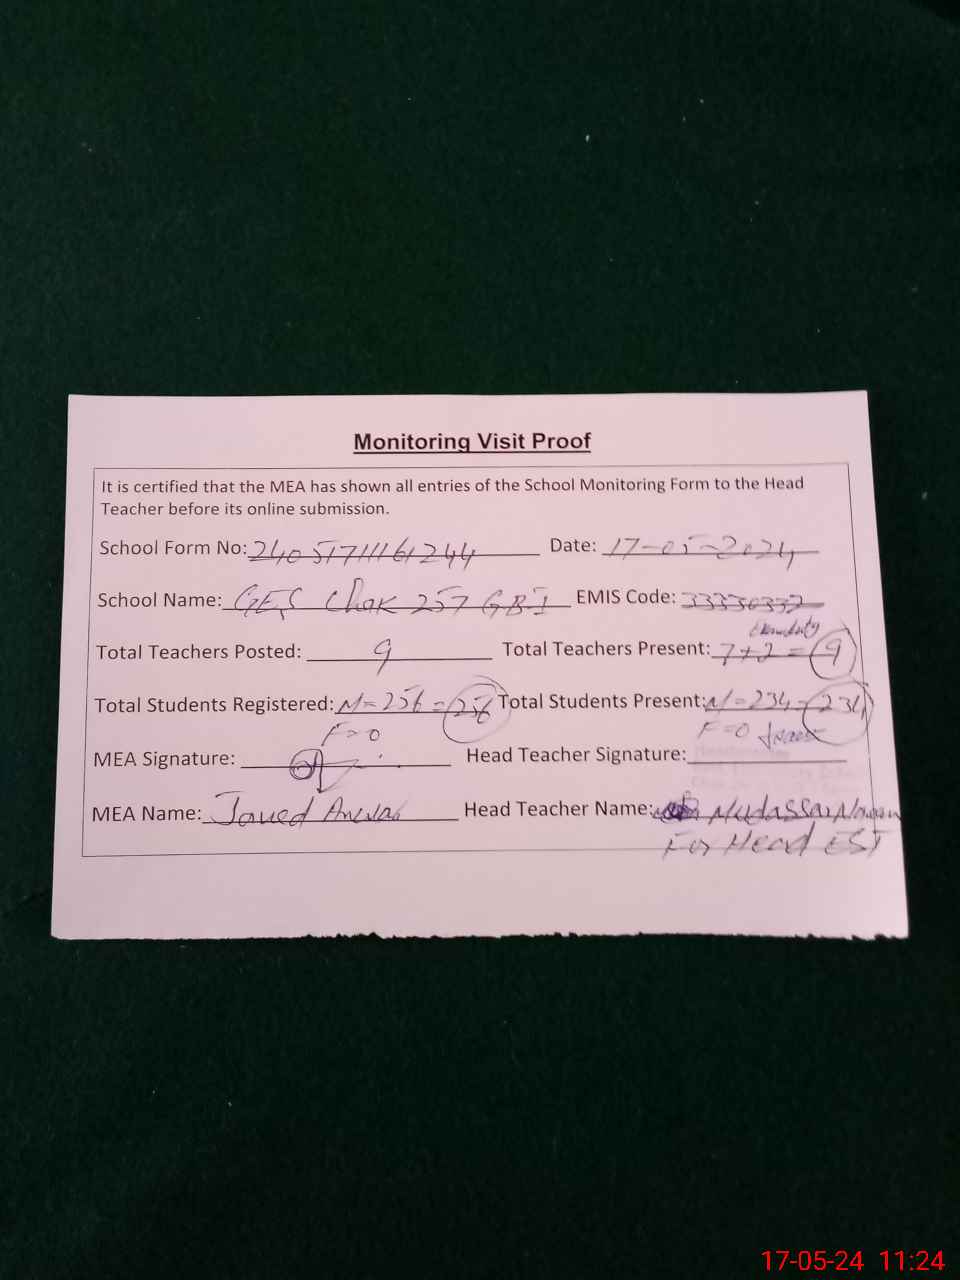 Monitoring Visit Proof
It is certified that the MEA has shown all entries of the School Monitoring Form to the Head
Teacher before its online submission.
School Form No: 240517111161244 Date: 17-05-2024
School Name: GES Chak 257 GB I EMIS Code: 33330337
Total Teachers Posted: 9 Total Teachers Present: 7+2=9
Total Students Registered: M=256=256 Total Students Present: M=234=234
F=0 F=0
MEA Signature: Head Teacher Signature:
MEA Name: Javed Anwar Head Teacher Name: Mudassar
For Head EST
17-05-24 11:24